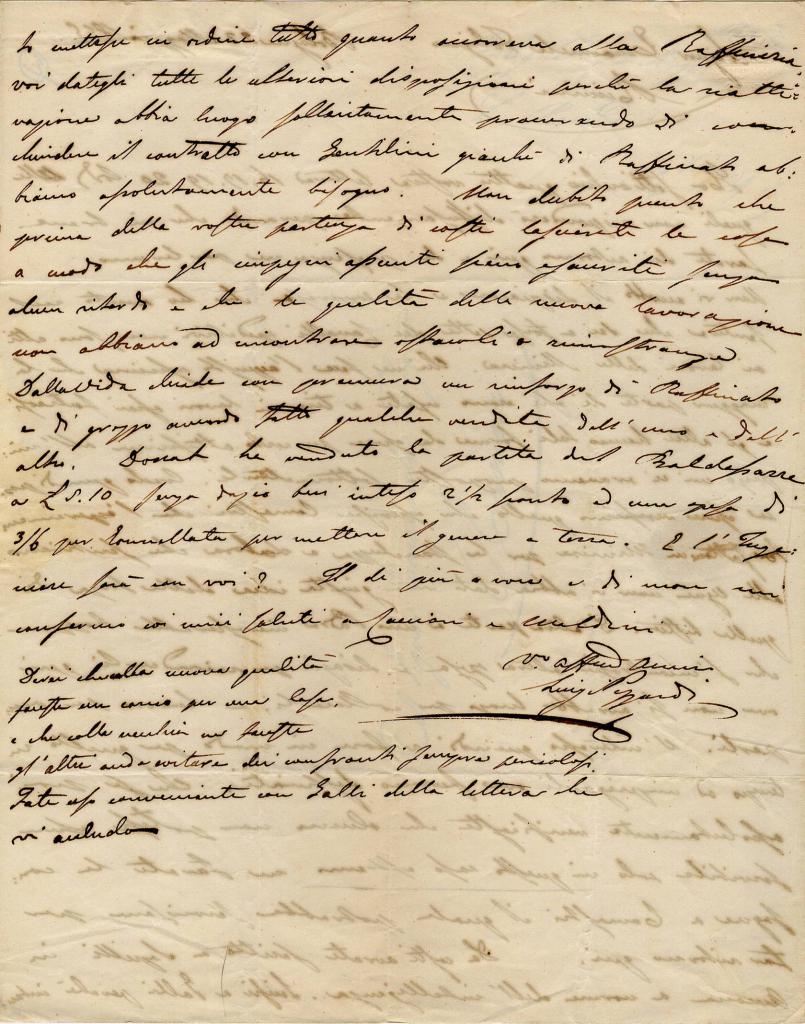 to mettesse in ordine tutto quanto occorreva alla Raffineria,
voi dategli tutte le ulteriori disposizioni perchè la riatti=
vazione abbia luogo sollecitamente procurando di con
chiudere il contratto con Gentilini giacchè di Raffinato ab:
biamo assolutamente bisogno. Non dubito punto che
prima della vostra partenza di costì lascierete le cose
a modo che gli impegni assunti sieno esauriti senza
alcun ritardo e che le qualità della nuova lavorazione
non abbiano ad incontrare ostacoli o rimostranze
DallaVida chiede con premura un rinforzo di Raffinato
e di grezzo avendo fatto qualche vendita dell'uno e dell'
altro. Donat ha venduto la partita del Baldassarre
a £ 5.10 senza dazio ben inteso 2 1/2 sconto ed una spesa di
3/6 per Tonnellata per mettere il genere a terra. E l'Inge:
niere sarà con voi? Il di più a voce e di nuovo mi
confermo coi miei saluti a Cacciari e
vo. affmo amico
Luigi Pizzardi
Direi che colla nuova qualità
faceste un carico per una casa,
e che colla vecchia ne faceste
gl'altri onde evitare dei confronti sempre pericolosi.
Fate uso conveniente con Galli della lettera che
vi accludo